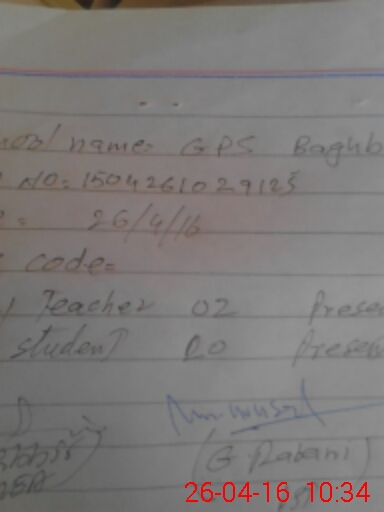 name: GPS Baghb
NO: 1504261029125
26/4/16
code=
Teacher 02 Prese
student 20 Prese
(G Rabani)
26-04-16 10:34